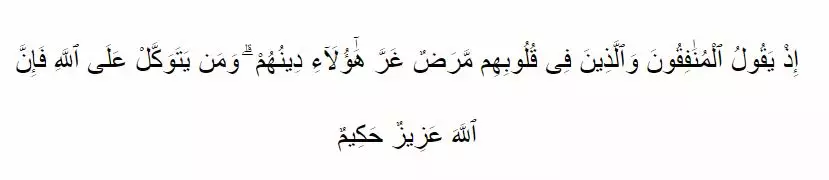 إِذْ يَقُولُ ٱلْمُنَٰفِقُونَ وَٱلَّذِينَ فِى قُلُوبِهِم مَّرَضٌ غَرَّ هَٰٓؤُلَآءِ دِينُهُمْ ۗ وَمَن يَتَوَكَّلْ عَلَى ٱللَّهِ فَإِنَّ
ٱللَّهَ عَزِيزٌ حَكِيمٌ